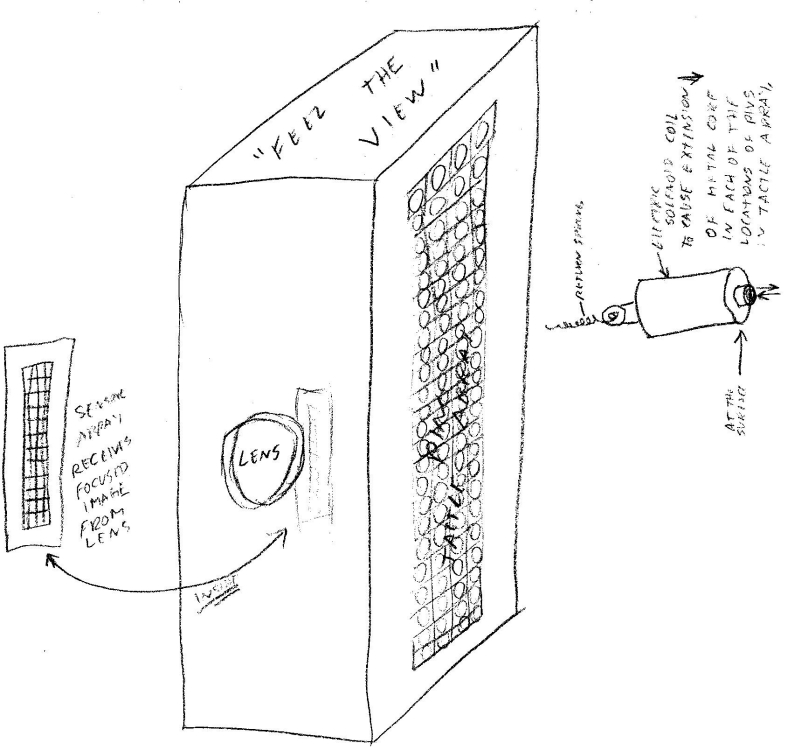 "FEEL THE
VIEW"
SENSOR
ARRAY
RECEIVES
FOCUSED
IMAGE
FROM
LENS
LENS
INSIDE
TACTLE PIN ARRAY
RETURN SPRING
ELECTRIC
SOLENOID COIL
TO CAUSE EXTENSION
OF METAL CORE
IN EACH OF THE
LOCATIONS OF PINS
IN TACTLE ARRAY.
AT THE
SURFACE